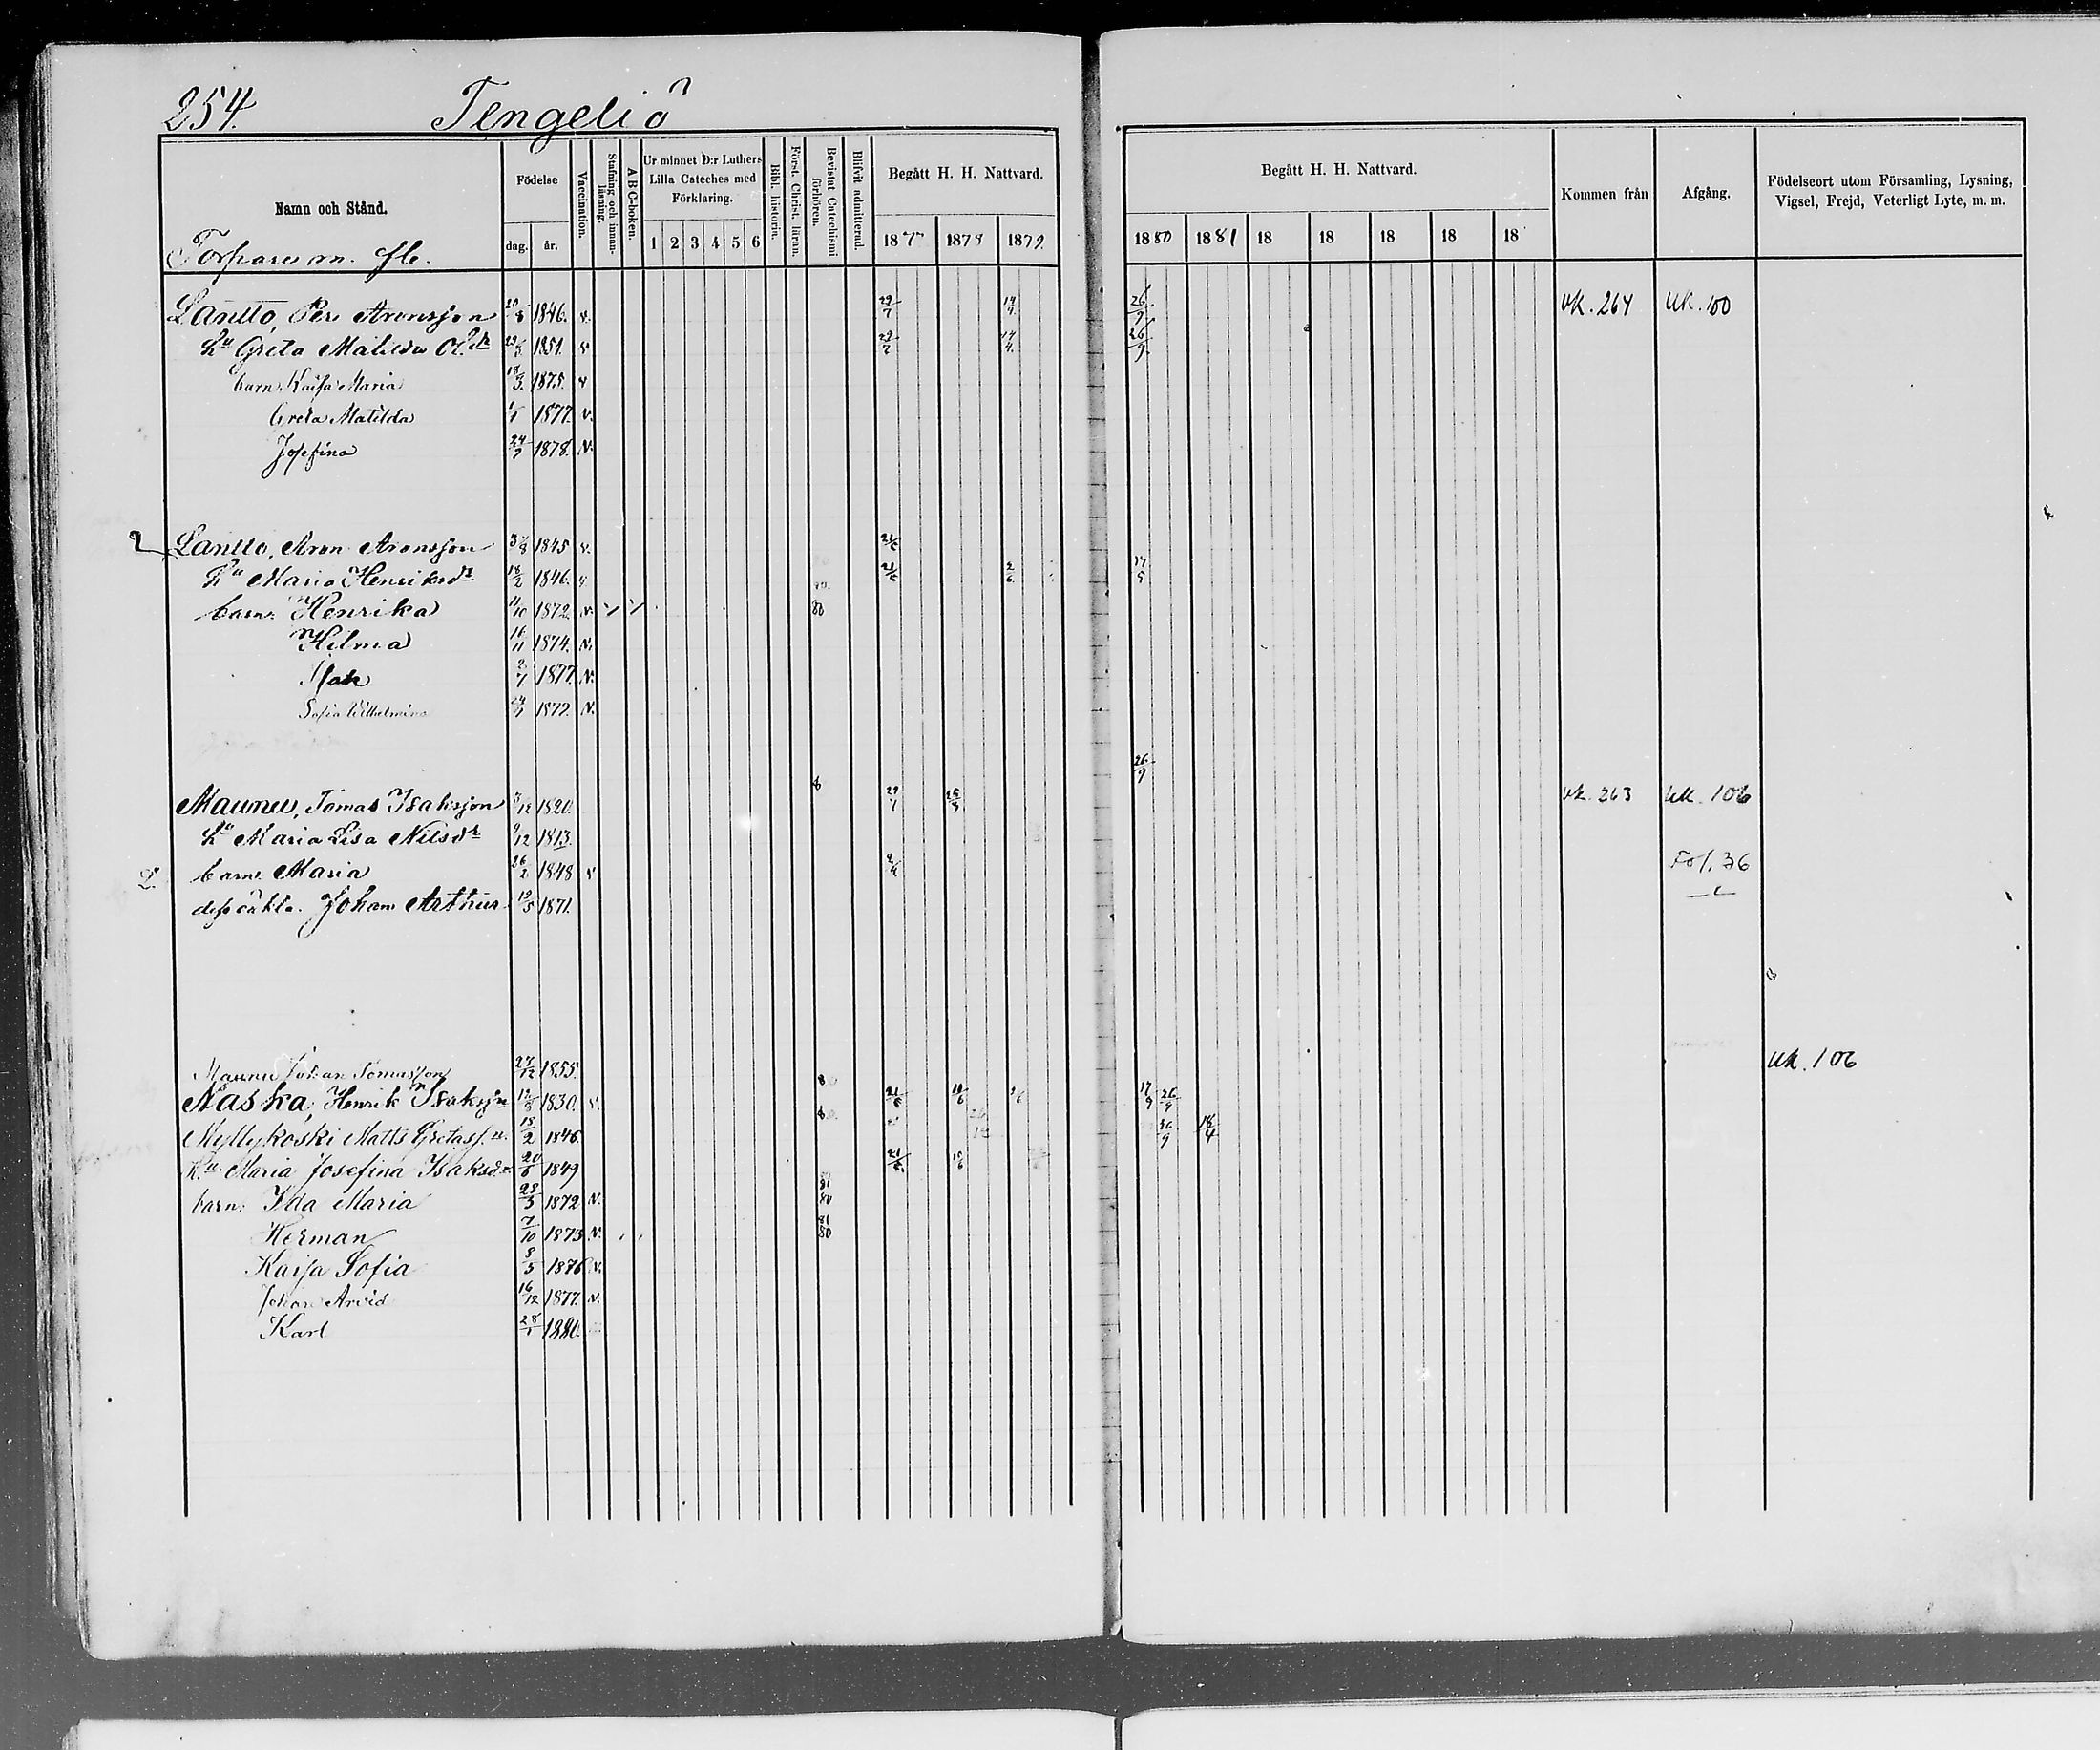 254. Tengeliö
Namn och Stånd. Födelse Vaccination. Stafning och innanläsning. A B C-boken. Ur minnet D:r Luthers Lilla Cateches med Förklaring. Bibl. historia. Först. Christ. läran. Bevistat Catechismi förhören. Blifvit admitterad. Begått H. H. Nattvard. Begått H. H. Nattvard. Kommen från Afgång. Födelseort utom Församling, Lysning, Vigsel, Frejd, Veterligt Lyte, m. m.
Torpare m. fle. dag. år. 1 2 3 4 5 6 187 1878 1879 1880 1881 18 18 18 18 18
Lantto, Per Aronsson 1846. v. 29/7 26/9 vk. 264 Uk. 100
hu Greta Matilda 1851. v 29/7 26/9
barn: Kaisa Maria 18/3 1875. v
Greta Matilda 1877. v.
Josefina 24/7 1878. v.
2 Lantto, Aron Aronsson 1845 v. 21/6
hu Maria Henriksdr 18/2 1846. v 21/6 2/6 17/9
barn: Henrika 11/10 1872. v. 80
Hilma 16/11 1874. v.
Isak 2/7 1877 v.
Sofia Wilhelmina v.
26/9
Maunu, Tomas Isaksson 3/12 1820. 29/7 vk. 263 Uk. 106
hu Maria Lisa Nilsdr 9/12 1813.
barn: Maria 26/2 1848 v Fol. 36
dess oäkta. Johan Arthur 19/5 1871.
Maunu Johan Tomasson 27/12 1855. Uk. 106
Naska, Henrik Isaksson 1830. v. 21/6 17/9 26/9
Myllykoski Matts Gretass. 15/2 1846. 26/9 18/4
Hu. Maria Josefina Isaksdr. 20/6 1849 21/6
barn: Ida Maria 28/3 1872 v. 81 80
Herman 7/10 1873 v. 81 80
Kaisa Sofia 8/5 1876 v.
Johan Arvid 16/12 1877. v.
Karl 28/1 1880.